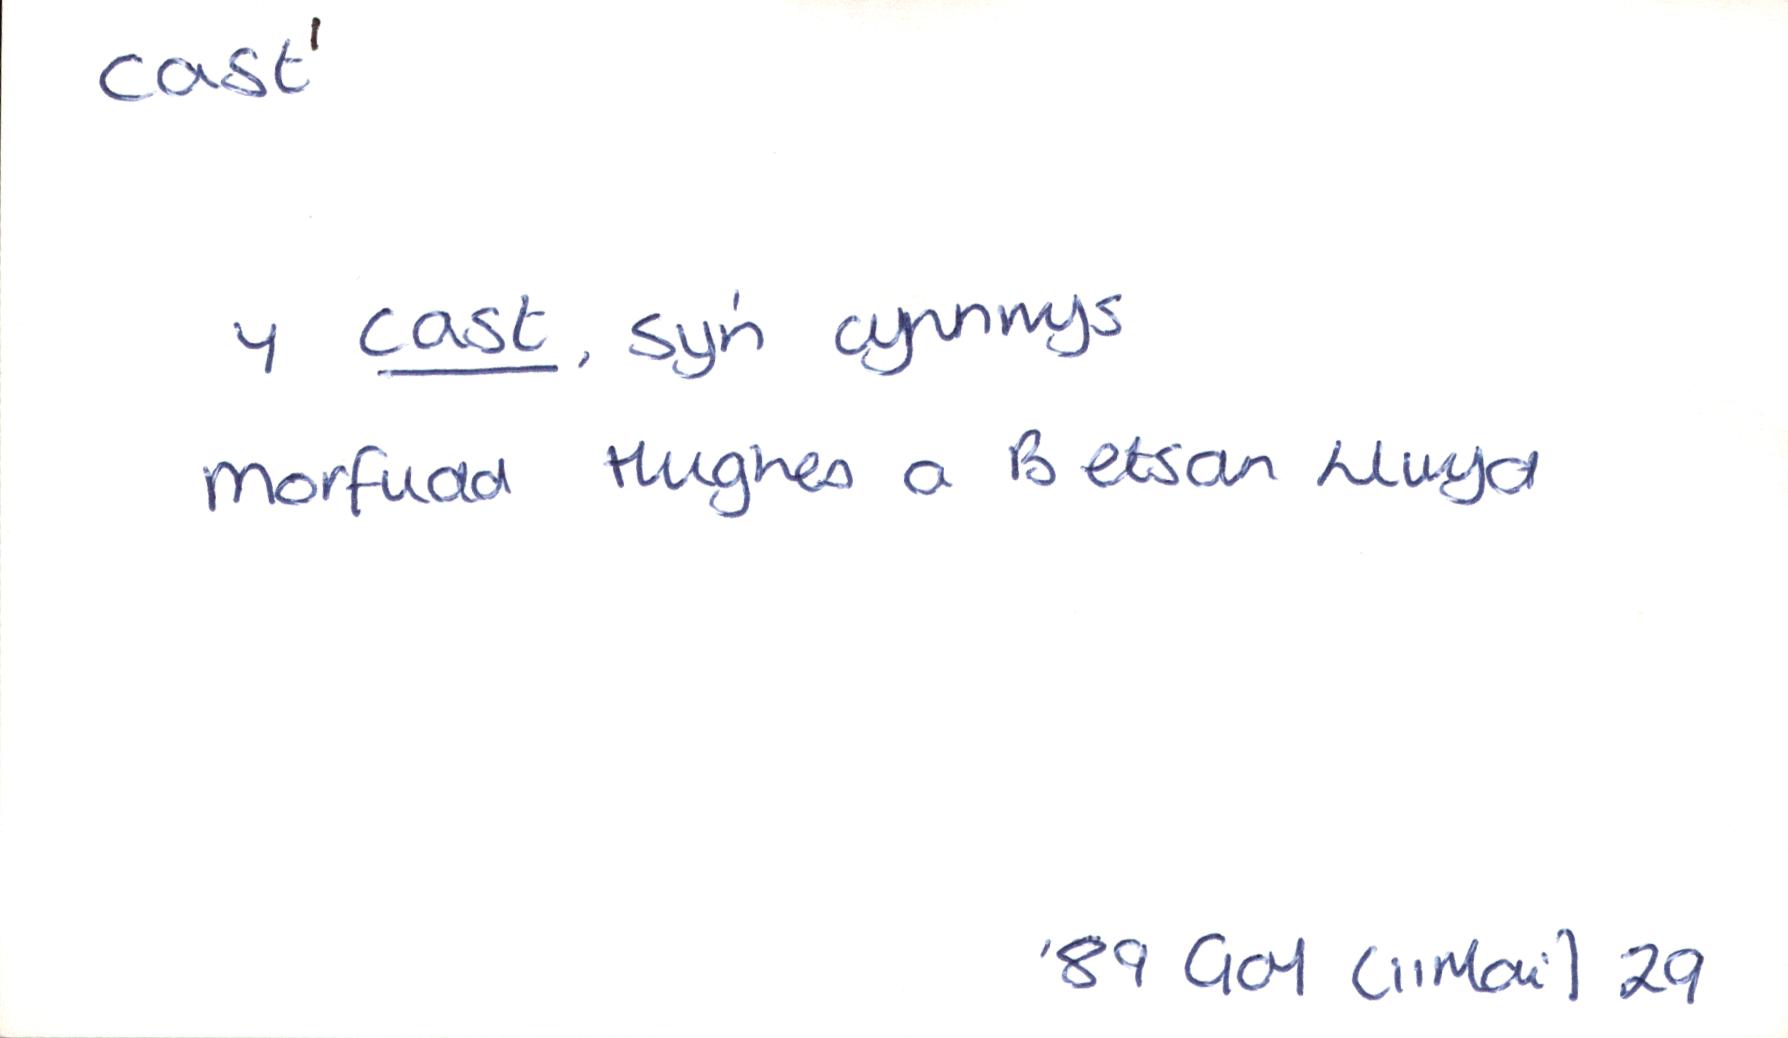 cast¹
y cast, sy'n cynnwys
Morfudd Hughes a Betsan Llwyd
'89 Gol (11 Mai) 29